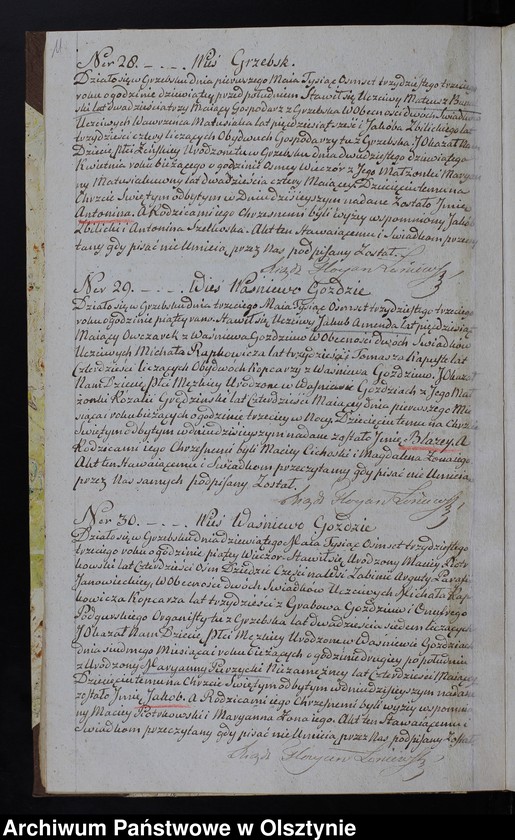 Ner 28. Wieś Grzebsk.
Działo się w Grzebsku dnia pierwszego Maia Tysiąc Osmset trzydziestego trzeciego
roku o godzinie dziewiątey przed południem Stawił się Uczciwy Mateusz
lat dwadzieścia trzy Maiący Gospodarz z Grzebska W Obecności dwoch Swiadkow
Uczciwych Wawrzenca Matusiaka lat pięćdziesiąt sześć i Jakoba Zbilickiego lat
trzydzieści cztery liczących Obydwoch Gospodarzy tu z Grzebska. I Okazał Nam
Dziecię Płci Zeńskiey Urodzone tu w Grzebsku dnia dwudziestego dziewiątego
Kwietnia roku bieżącego o godzinie Osmey Wieczor z Jego Małżonki Maryan
ny Matusiakowny lat dwadzieścia cztery Maiącey. Dziecięciu temu na
Chrzcie Swiętym odbytym w dniu dzisieyszym nadane Zostało Imie
Antonina. A Rodzicami iego Chrzesnemi byli wyży wspomniony Jakob
Zbilicki i Antonina Szelboska. Akt ten Stawaiącemu i Swiadkom przeczy
tany gdy pisać nie Umieią, przez Nas podpisany Zostal.
Xiądz Floryan
Ner 29. Wieś Waśniewo Gożdzie
Działo się w Grzebsku dnia trzeciego Maia Tysiąc Osmset trzydziestego trzeciego
roku o godzinie piątey rano. Stawił się Uczciwy Jakub Amenda lat pięćdziesiąt
Maiący Owczarek z Waśniewa Gozdziwo W Obecności dwoch Swiadkow
Uczciwych Michała Kapkowicza lat trzydzieści i Tomasza Kapusty lat
Czterdzieści liczących Obydwoch Kopcarzy z Waśniewa Gozdziwo. I Okazał
Nam Dziecię Płci Męzkiey Urodzone w Waśniewie Gozdziach z Jego Mał
żonki Rozalii lat Czterdzieści Maiącey dnia pierwszego Mie
siąca i roku bieżących o godzinie trzeciey w Nocy. Dziecięciu temu na Chrzcie
Swiętym odbytym w dniu dzisieyszym nadane zostało Imie Blazey. A
Rodzicami iego Chrzesnemi byli Maciey Cichoski i Magdalena Zona iego
Akt ten Stawaiącemu i Swiadkom przeczytany gdy pisać nie Umieią
przez Nas samych podpisany Zostal.
Xiądz Floryan
Ner 30. Wieś Waśniewo Goździe
Działo się w Grzebsku dnia dziewiątego Maia Tysiąc Osmset trzydziestego
trzeciego roku o godzinie piątey Wieczor Stawił się Urodzony Maciey Piotr
kowski lat Czterdzieści Osm Dziedzic Części
W Obecności dwoch Swiadkow Uczciwych Michała Kap
kowicza Kopcarza lat trzydzieści z Grabowa Gozdziwo i Onufrego
Podgurskiego Organisty tu z Grzebska lat dwadzieścia siedem liczących
I Okazał Nam Dziecię Płci Męzkiey Urodzone w Waśniewie Gozdziach
dnia siodmego Miesiąca i roku bieżących o godzinie drugiey po południu
z Urodzony Maryanny Niezamęzney lat Czterdzieści Maiącey
Dziecięciu temu na Chrzcie Swiętym odbytym w dniu dzisieyszym nadane
zostało Imie Jakob. A Rodzicami iego Chrzesnemi byli wyżey wspomnio
ny Maciey Piotrkowski i Maryanna Zona iego. Akt ten Stawaiącemu i
Swiadkom przeczytany gdy pisać nie Umieią przez Nas podpisany Zostal
Xiądz Floryan
Archiwum Państwowe w Olsztynie